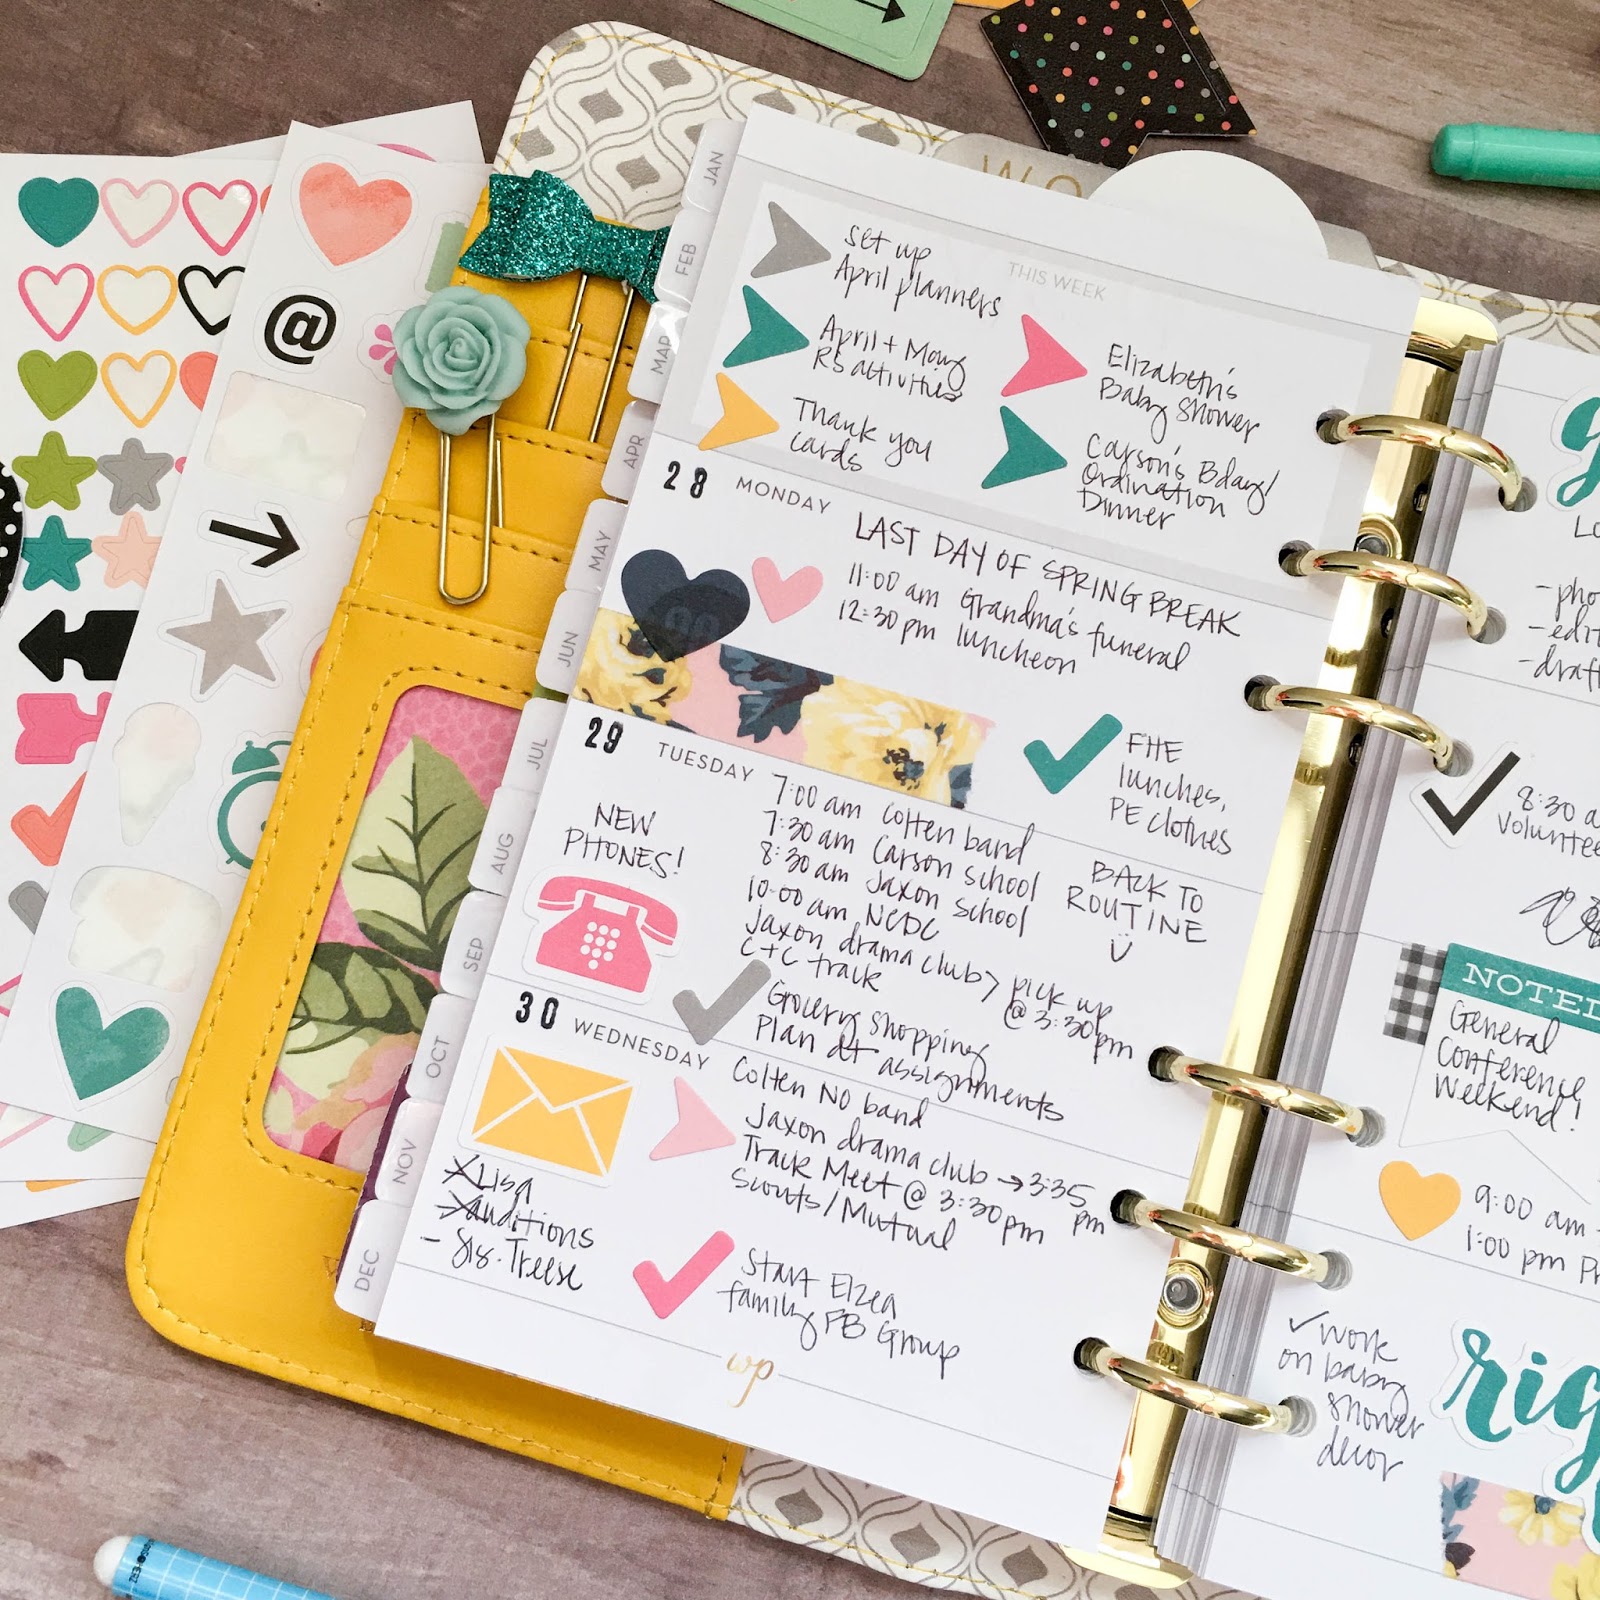 WO
JAN
FEB
MAR
APR
MAY
JUN
JUL
AUG
SEP
OCT
NOV
DEC
@
THIS WEEK
set up
April planners
April + May
RS activities
Thank you
cards
Elizabeth's
Baby Shower
Carson's Bday/
Ordination
Dinner
28 MONDAY
LAST DAY OF SPRING BREAK
11:00 am Grandma's funeral
12:30 pm luncheon
FHE
lunches,
PE clothes
29 TUESDAY
NEW
PHONES!
7:00 am Colten band
7:30 am Carson school
8:30 am Jaxon school
10:00 am NCDC
Jaxon drama club
C+C track
pick up
@ 3:30pm
BACK TO
ROUTINE
Grocery shopping
Plan dt assignments
30 WEDNESDAY
Lisa
auditions
- Sis. Treese
Colten NO band
Jaxon drama club → 3:35
pm
Track Meet @ 3:30pm
Scouts/Mutual
Start Elzea
family FB Group
wp
- edit
8:30 a
Voluntee
NOTED
General
Conference
Weekend!
9:00 am -
1:00 pm
✓ work
on baby
shower
decor
rig